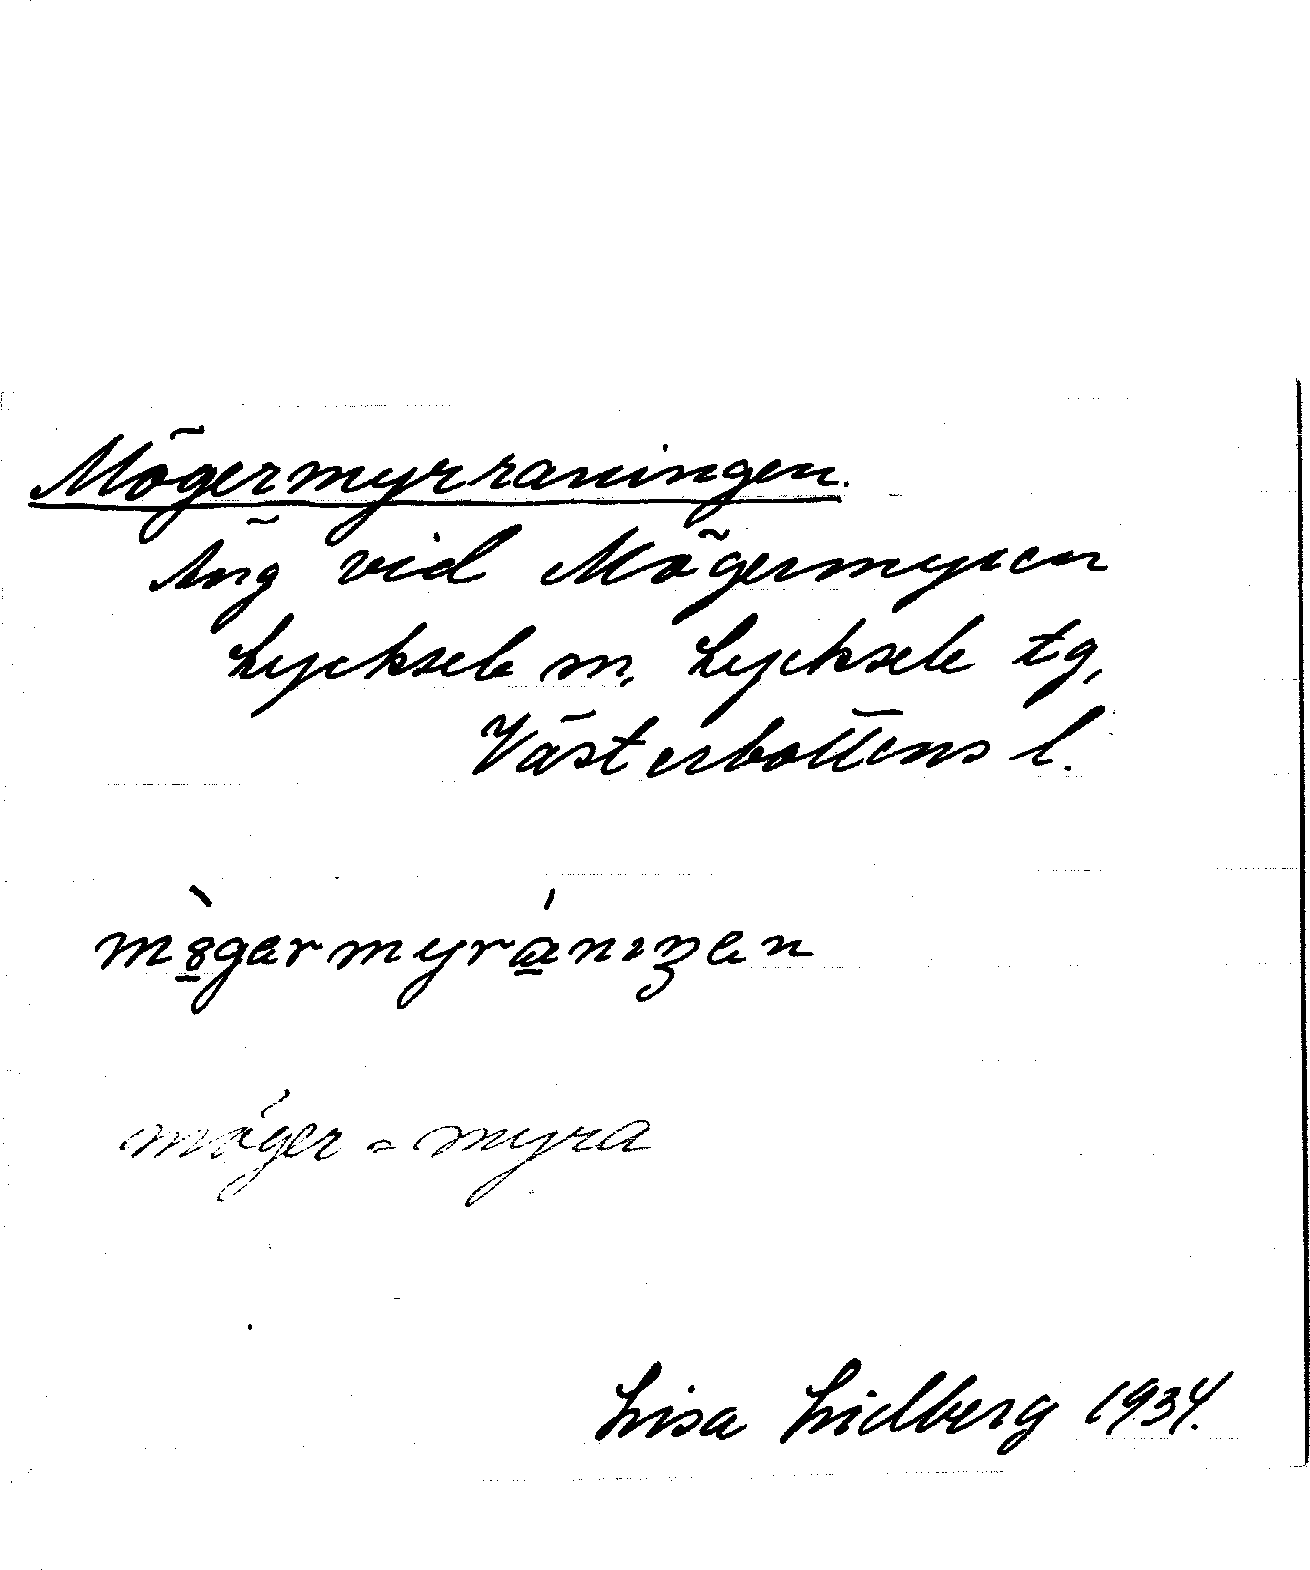 Mögermyrraningen.
Äng vid Mögermyran
Lycksele sn, Lycksele tg,
Västerbottens l.
mö̀germyrániŋen
möger-myra
Lisa Lidberg 1934.